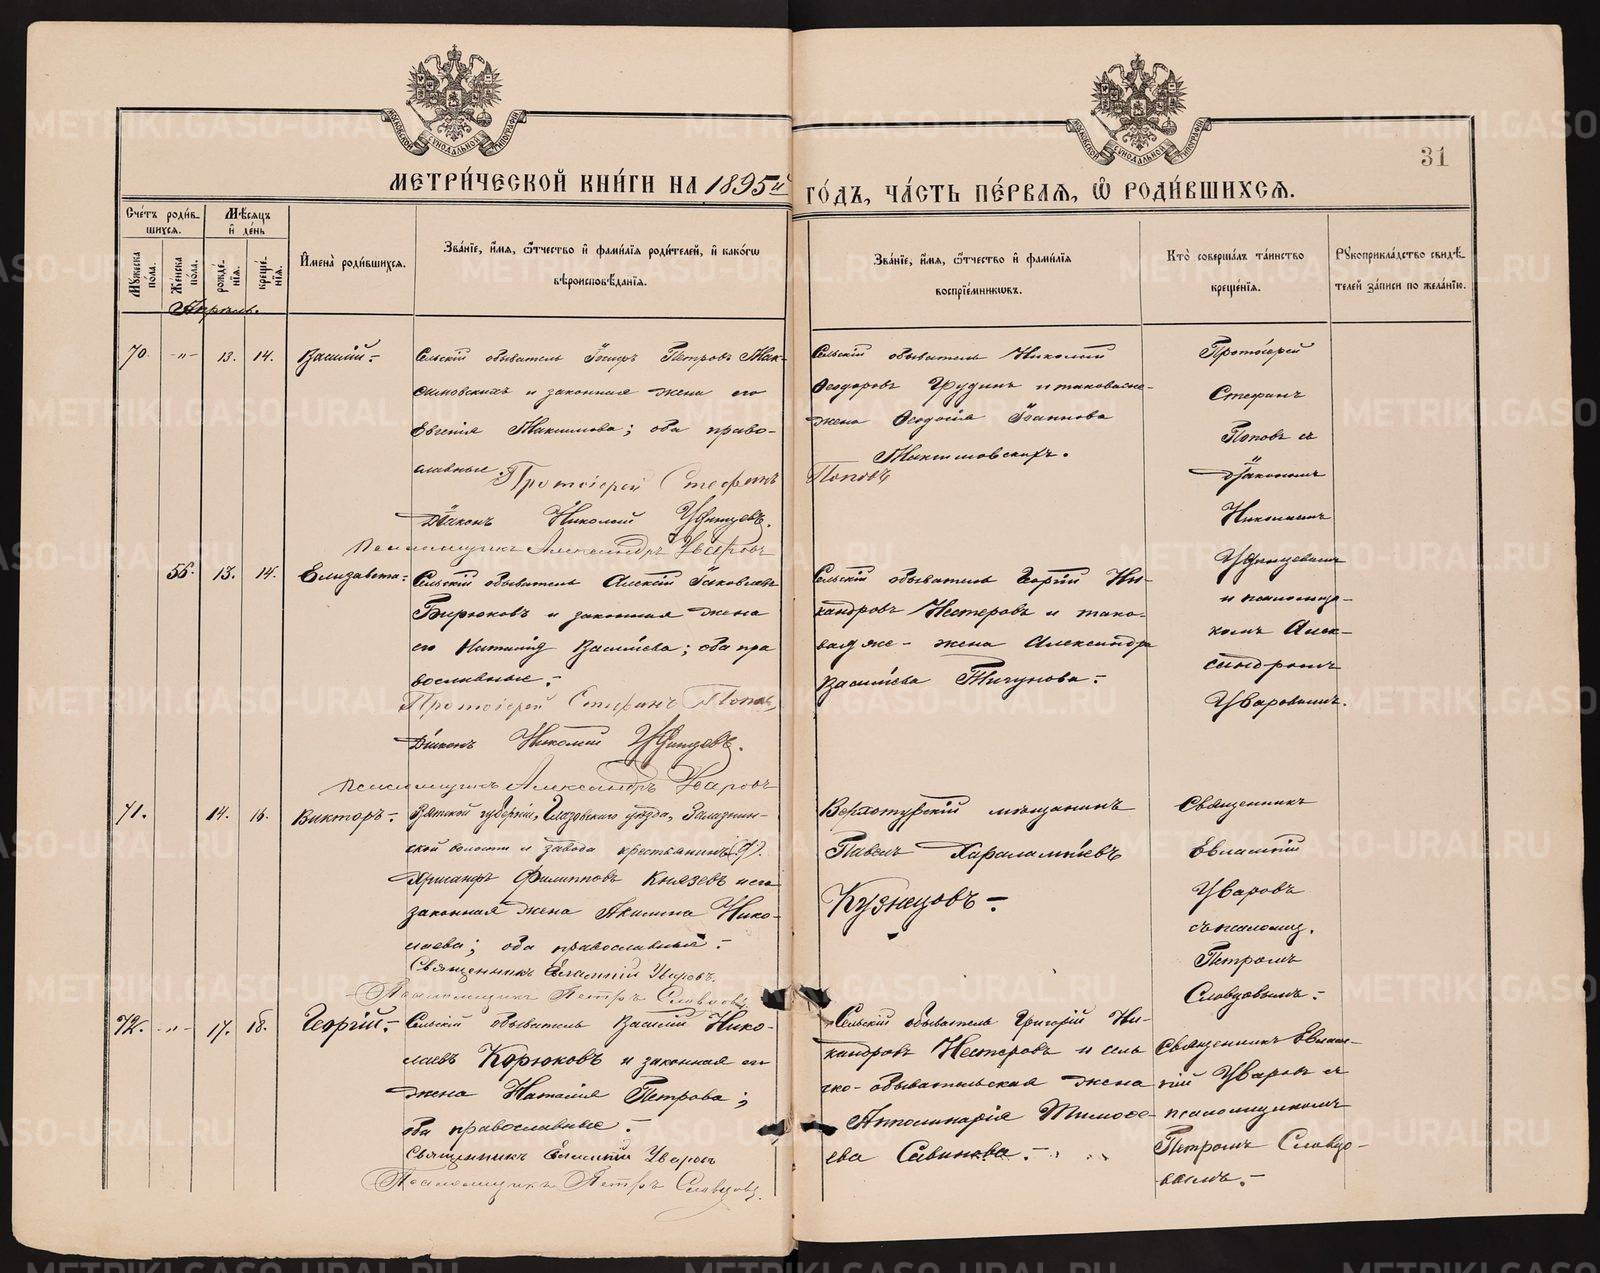 МОСКОВСКОЙ СУНОДАЛЬНОЙ ТИПОГРАФІИ
МОСКОВСКОЙ СУНОДАЛЬНОЙ ТИПОГРАФІИ
31
МЕТРИ́ЧЕСКОЙ КНИ́ГИ НА 1895й ГО́ДЪ, ЧА́СТЬ ПЕ́РВАЯ, Ѽ РОДИ́ВШИХСЯ.
Сче́тъ роди́в-
шихся.
Мѣсяцъ
и҆ де́нь
Мꙋжеска пола.
Же́нска пола.
рожде́-
нія.
креще́-
нія.
И҆мена̀ роди́вшихся.
Зва́ніе, и҆́мя, ѻ҆́тчество и҆ фами́лія роди́телей, и҆ како́гѡ
вѣроисповѣ́данія.
Зва́ніе, и҆́мя, ѻ҆́тчество и҆ фами́лія
воспріе́мникѡвъ.
Кто̀ соверша́лъ та́инство
креще́нія.
Рꙋкоприкла́дство свидѣ́-
телей за́писи по жела́нію.
Апрѣль.
70. -"- 13. 14. Василій:-
Сельскій обыватель Петровъ Мак-
симовскихъ и законная жена его
Евгенія Максимова; оба право-
славные.
Протоіерей Стефанъ Поповъ
Діаконъ Николай
Псаломщикъ Александръ Уваровъ
Сельскій обыватель Николай
Ѳеодоровъ Грудинъ и таковаяже-
жена Ѳеодосія Іоаннова
Максимовскихъ.
Протоіерей
Стефанъ
Поповъ съ
Діакономъ
Николаемъ
и псаломщи-
комъ Алек-
сандромъ
Уваровымъ.
55. 13. 14. Елизавета:-
Сельскій обыватель Алексій Іаковлевъ
Бирюковъ и законная жена
его Наталія Василіева; оба пра
вославные.-
Протоіерей Стефанъ Поповъ
Діаконъ Николай
Псаломщикъ Александръ Уваровъ
Сельскій обыватель Георгій Ни-
кандровъ Нестеровъ и тако-
ваяже- жена Александра
Василіева Тичунова:-
71. 14. 16. Викторъ:-
Вятской губерніи, Глазовскаго уѣзда, Залазнин-
ской волости и завода крестьянинъ
Хрисанфъ Филипповъ Князевъ и его
законная жена Акилина Нико-
лаева; оба православные:-
Священникъ Евлампій Уваровъ.
Псаломщикъ Петръ Словцовъ
Верхотурскій мѣщанинъ
Павелъ Харалампіевъ
Кузнецовъ:-
Священникъ
Евлампій
Уваровъ
съ псаломщ.
Петромъ
Словцовымъ:-
72. -"- 17. 18. Георгій:-
Сельскій обыватель Василій Нико-
лаевъ Корюковъ и законная его
жена Наталія Петрова;
оба православные:-
Священникъ Евлампій Уваровъ
Псаломщикъ Петръ Словцовъ.
Сельскій обыватель Григорій Ни-
кандровъ Нестеровъ и сель
ско-обывательская жена
Апполинарія Тимоѳе-
ева Савинова:-
Священникъ Евлам-
пій Уваровъ съ
псаломщикомъ
Петромъ Словцо-
вымъ.-
METRIKI.GASO-URAL.RU